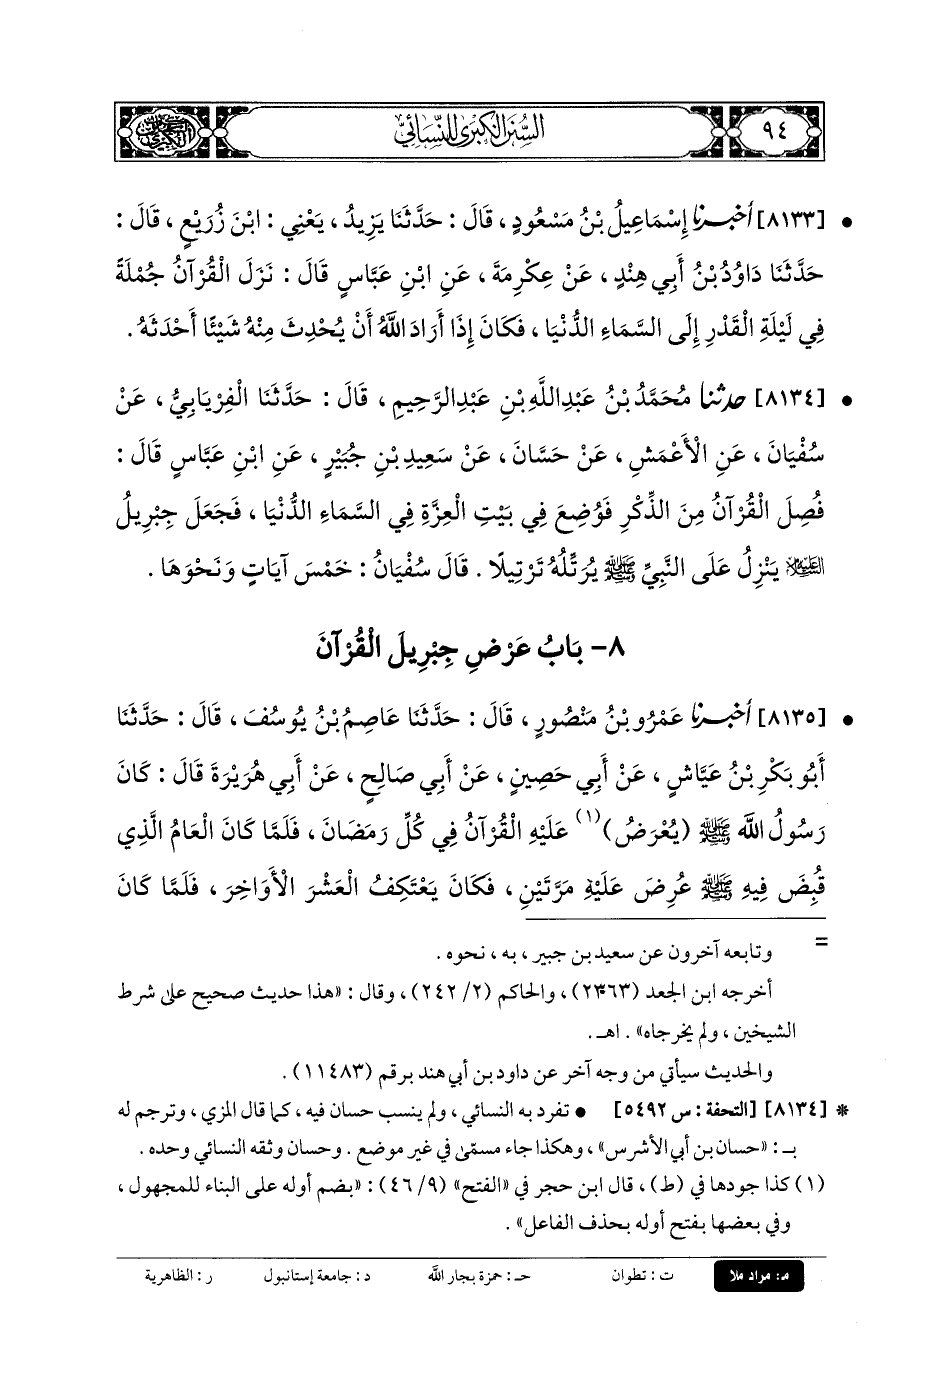 ٩٤
السنن الكبرى للنسائي
• [٨١٣٣] أخبرنا إِسْمَاعِيلُ بْنُ مَسْعُودٍ ، قَالَ : حَدَّثَنَا يَزِيدُ ، يَعْنِي : ابْنَ زُرَيْعٍ ، قَالَ :
حَدَّثَنَا دَاوُدُ بْنُ أَبِي هِنْدٍ ، عَنْ عِكْرِمَةَ ، عَنِ ابْنِ عَبَّاسٍ قَالَ : نَزَلَ الْقُرْآنُ جُمْلَةً
فِي لَيْلَةِ الْقَدْرِ إِلَى السَّمَاءِ الدُّنْيَا ، فَكَانَ إِذَا أَرَادَ اللَّهُ أَنْ يُحْدِثَ مِنْهُ شَيْئًا أَحْدَثَهُ .
• [٨١٣٤] حدثنا مُحَمَّدُ بْنُ عَبْدِاللَّهِ بْنِ عَبْدِالرَّحِيمِ ، قَالَ : حَدَّثَنَا الْفِرْيَابِيُّ ، عَنْ
سُفْيَانَ ، عَنِ الْأَعْمَشِ ، عَنْ حَسَّانَ ، عَنْ سَعِيدِ بْنِ جُبَيْرٍ ، عَنِ ابْنِ عَبَّاسٍ قَالَ :
فُصِلَ الْقُرْآنُ مِنَ الذِّكْرِ فَوُضِعَ فِي بَيْتِ الْعِزَّةِ فِي السَّمَاءِ الدُّنْيَا ، فَجَعَلَ جِبْرِيلُ
عليه السلام يَنْزِلُ عَلَى النَّبِيِّ ﷺ يُرَتِّلُهُ تَرْتِيلًا . قَالَ سُفْيَانُ : خَمْسَ آيَاتٍ وَنَحْوَهَا .
٨- بَابُ عَرْضِ جِبْرِيلَ الْقُرْآنَ
• [٨١٣٥] أخبرنا عَمْرُو بْنُ مَنْصُورٍ ، قَالَ : حَدَّثَنَا عَاصِمُ بْنُ يُوسُفَ ، قَالَ : حَدَّثَنَا
أَبُو بَكْرِ بْنُ عَيَّاشٍ ، عَنْ أَبِي حَصِينٍ ، عَنْ أَبِي صَالِحٍ ، عَنْ أَبِي هُرَيْرَةَ قَالَ : كَانَ
رَسُولُ اللَّهِ ﷺ (يُعْرَضُ)(١) عَلَيْهِ الْقُرْآنُ فِي كُلِّ رَمَضَانَ ، فَلَمَّا كَانَ الْعَامُ الَّذِي
قُبِضَ فِيهِ ﷺ عُرِضَ عَلَيْهِ مَرَّتَيْنِ ، فَكَانَ يَعْتَكِفُ الْعَشْرَ الْأَوَاخِرَ ، فَلَمَّا كَانَ
= وتابعه آخرون عن سعيد بن جبير ، به ، نحوه .
أخرجه ابن الجعد (٢٣٦٣) ، والحاكم (٢/ ٢٤٢) ، وقال : «هذا حديث صحيح على شرط
الشيخين ، ولم يخرجاه» . اهـ .
والحديث سيأتي من وجه آخر عن داود بن أبي هند برقم (١١٤٨٣) .
* [٨١٣٤] [التحفة : س ٥٤٩٢] • تفرد به النسائي ، ولم ينسب حسان فيه ، كما قال المزي ، وترجم له
بـ : «حسان بن أبي الأشرس» ، وهكذا جاء مسمّى في غير موضع . وحسان وثقه النسائي وحده .
(١) كذا جودها في (ط) ، قال ابن حجر في «الفتح» (٤٦/٩) : «بضم أوله على البناء للمجهول ،
وفي بعضها بفتح أوله بحذف الفاعل» .
م: مراد ملا ت : تطوان حـ : حمزة بجار الله د : جامعة إستانبول ر : الظاهرية